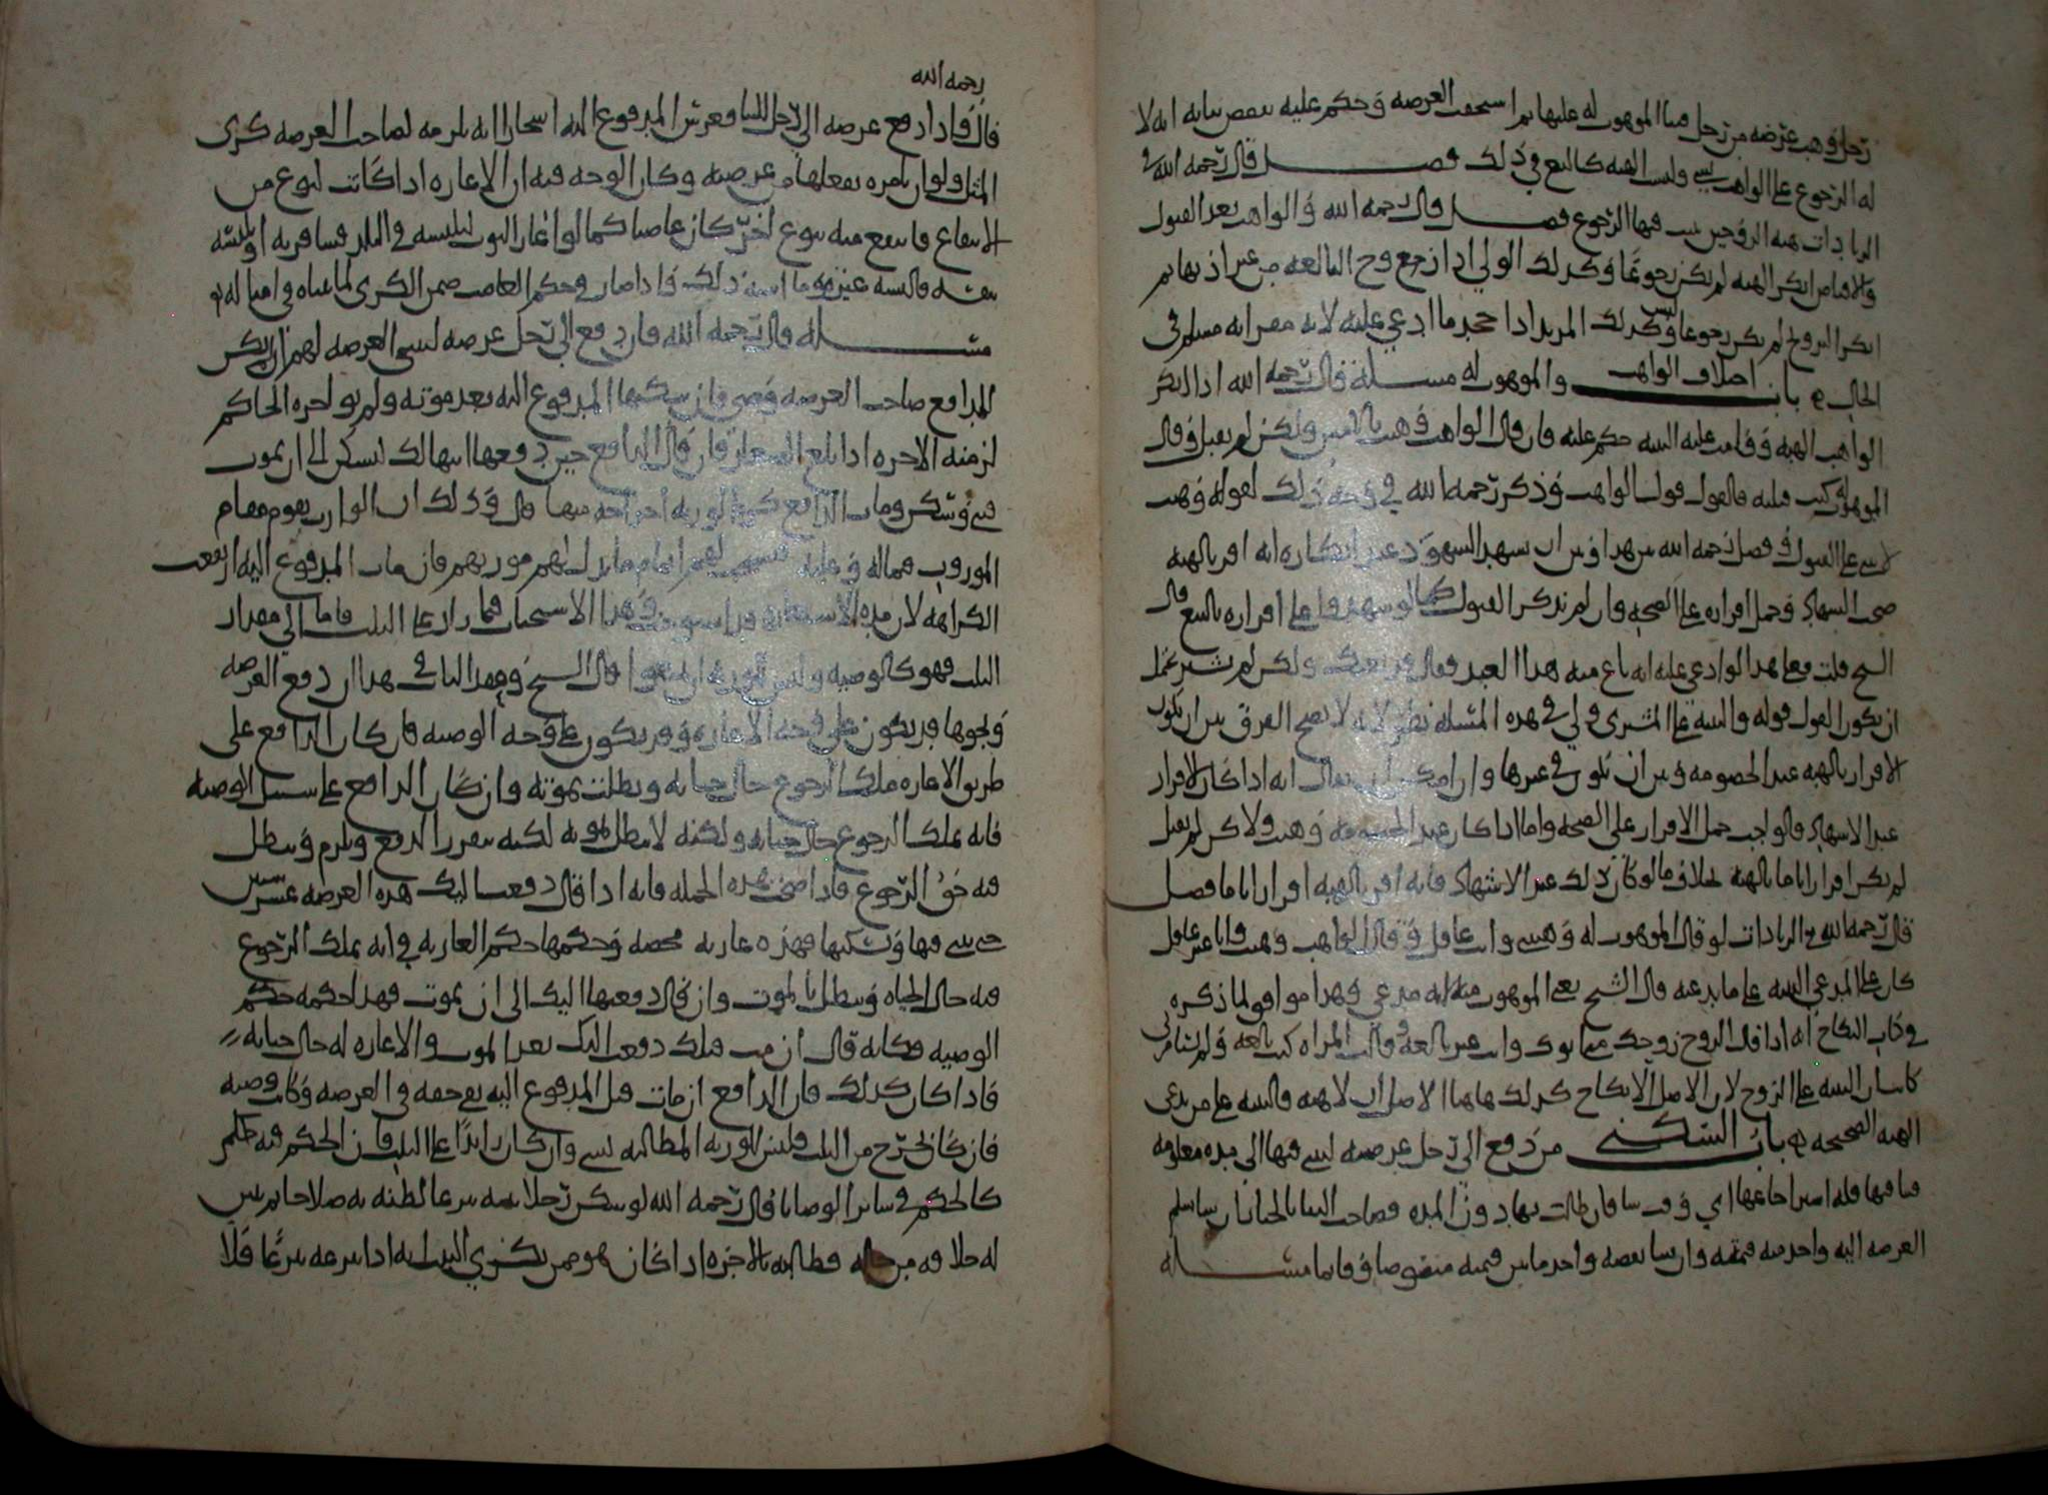 رجل وهب عرضه من رجل فبنا الموهوب له عليها ثم استحقت العرصه وحكم عليه بنقض بنايه انه لا
له الرجوع على الواهب وليست الهبه كالبيع في ذلك فصل قال رحمه الله في
الزيادات هبه الزوجين ليس فيها الرجوع فصل قال رحمه الله والواهب بعد القبول
والاقباض انكر الهبه لم يكن رجوعا وكذلك الولي اذا زوج البالغه من غير اذنها ثم
انكر التزويج لم يكن رجوعا وليس كذلك المرتد اذا جحد ما ادعي عليه لانه مقر انه مسلم في
الحال باب اختلاف الواهب والموهوب له مسله قال رحمه الله اذا انكر
الواهب الهبه وقامت عليه البينه حكم عليه فان قال الواهب وهبت بالامس ولكن لم يقبل وقال
الموهوب له كنت قبلته فالقول قول الواهب وذكر رحمه الله في وجه ذلك لقوله وهبت
لا على القبول وفصل رحمه الله بين هذا وبين ان يشهد الشهود عند انكاره انه اقر بالهبه
صحت الشهاده وحمل اقراره على الصحه وان لم تذكر القبول كما لو شهدوا على اقراره بالبيع قال
الشيخ قلت فعلى هذا لو ادعى عليه انه باع منه هذا العبد فقال قد بعتك ولكن لم تشتر يحتمل
ان يكون القول قوله والبينه على المشتري ولي في هذه المسله نظر لانه لا يصح الفرق بين ان يكون
الاقرار بالهبه عند الخصومه وبين ان يكون في غيرها وان امكن ان يقال انه اذا كان الاقرار
عند الاشهاد فالواجب حمل الاقرار على الصحه واما اذا كان عند الخصومه وهبت ولاكن لم يقبل
لم يكن اقرارا تاما بالهبه بخلاف ما لو كان ذلك عند الاشهاد فانه اقر بالهبه اقرارا تاما فصل
قال رحمه الله في الزيادات لو قال الموهوب له وهبتني وانت عاقل وقال الواهب وهبت وانا غير عاقل
كان على المدعي البينه على ما يدعيه قال الشيخ يعني الموهوب منه انه مدعي وهذا موافق لما ذكره
في كتاب النكاح انه اذا قال الزوج زوجك ابوك وانت غير بالغه وقالت المراه كنت بالغه ولم
كانت البينه على الزوج لان الاصل الا نكاح كذلك هاهنا الاصل ان لا هبه فالبينه على من يدعي
الهبه الصحيحه باب السكنى من دفع الى رجل عرصه ليبني فيها الى مده معلومه
فبنا فيها فله اخراجها اي وقت شا فان طالت بها دون المده فصاحب البنا بالخيار ان شا سلم
العرصه اليه واخذ منه قيمته وان شا نقضه واخذ ما بين قيمته منقوضا وقايما مسله
رحمه الله
قال واذا دفع عرصه الى رجل للبنا فغرس المدفوع اليه اشجارا انه يلزمه لصاحب العرصه كرى
المثل ولو ان يامره بقلعها من عرصته وكان الوجه فيه ان الاعاره اذا كانت لنوع من
الانتفاع فانتفع منه بنوع اخر كان غاصبا كما لو اعار الثوب ليلبسه في البلد فسافر به او يلبسه
بنفسه فالبسه غيره وما اشبه ذلك فاذا صار في حكم الغاصب ضمن الكرى لما بيناه في امثاله
مسله قال رحمه الله فان دفع الى رجل عرصه ليبني العرصه لهم ان يسكن
المدافع صاحب العرصه ومضى وان سكنها المدفوع اليه بعد موته ولم يواجره الحاكم
لزمته الاجره اذا بلغ الصغار فان قال الدافع حين دفعها انها لك تسكن الى ان يموت
فبنى وسكن ومات الدافع كره للورثه اخراجه منها قال وذلك ان الوارث يقوم مقام
الموروث فماله وعليه لهم اتمام ما بذل لهم مورثهم فان مات المدفوع اليه ارتفعت
الكراهه لان مده الاستعاره قد استوفت وهذا الاستحباب فيما زاد على الثلث فاما الى مقدار
الثلث فهو كالوصيه وليس للورثه ان قال الشيخ وفقه الباب في هذا ان دفع العرصه
ونحوها قد يكون على وجه الاعاره وقد يكون على وجه الوصيه فان كان الدافع على
طريق الاعاره ملك الرجوع حال حياته وبطلت بموته وان كان الدافع على سبيل الوصيه
فانه يملك الرجوع حال حياته ولكنه لا يبطل بموته لكنه يتقرر الدفع ويلزم ويبطل
فيه حق الرجوع فاذا صحت هذه الجمله فانه اذا قال دفعت اليك هذه العرصه عشر سنين
حتى تبني فيها وتسكنها فهذه عاريه محضه وحكمها حكم العاريه في انه يملك الرجوع
فيه حال الحياه ويبطل بالموت وان قال دفعتها اليك الى ان يموت فهذا حكمه حكم
الوصيه فكانه قال ان مت قبلك دفعت اليك بعد الموت والاعاره له حال حياته
فاذا كان كذلك فان الدافع ان مات قبل المدفوع اليه بقي حقه في العرصه وكانت وصيه
فان كان يخرج من الثلث فليس للورثه المطالبه بشي وان كان زايدا على الثلث فان الحكم فيه حكم
كالحكم في ساير الوصايا قال رحمه الله لو سكن رجلا بيته تبرعا لظنه به صلاحا ثم تبين
له خلافه من حاله فطالبه بالاجره اذا كان هو ممن يكري البيت انه اذا تبرعه تبرعا فلا